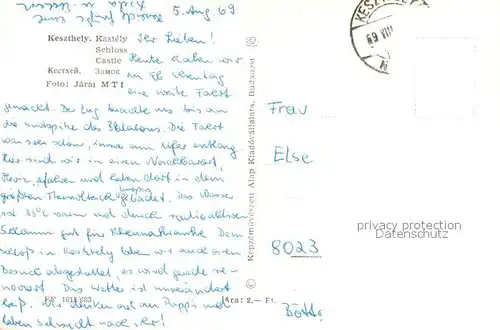 5. Aug. 69
Keszthely. Kastély
Schloss
Castle
Кестхей. Замок
Foto: Járai MTI
Ihr Lieben!
Heute haben wir
eine weite Fahrt
gemacht. Der Zug brachte uns bis an
die Südspitze des Balatons. Die Fahrt
war sehr schön, immer am Ufer entlang.
Hier sind wir in einen Nachbarort
gefahren und haben dort in dem
größten Thermalteich Europas gebadet. Das Wasser
ist 35°C warm und durch radioaktiven
Schlamm gut für Rheumakranke. Dem
Schloß in Keszthely haben wir auch einen
Besuch abgestattet, es wird gerade re-
noviert. Das Wetter ist unverändert
Wir denken viel an Puppi und
haben Sehnsucht nach ihr!
KESZTHELY
69 VIII
Képzőművészeti Alap Kiadóvállalata, Budapest
Frau
Else
8023
privacy protection
Datenschutz
Ára: 2,— Ft.